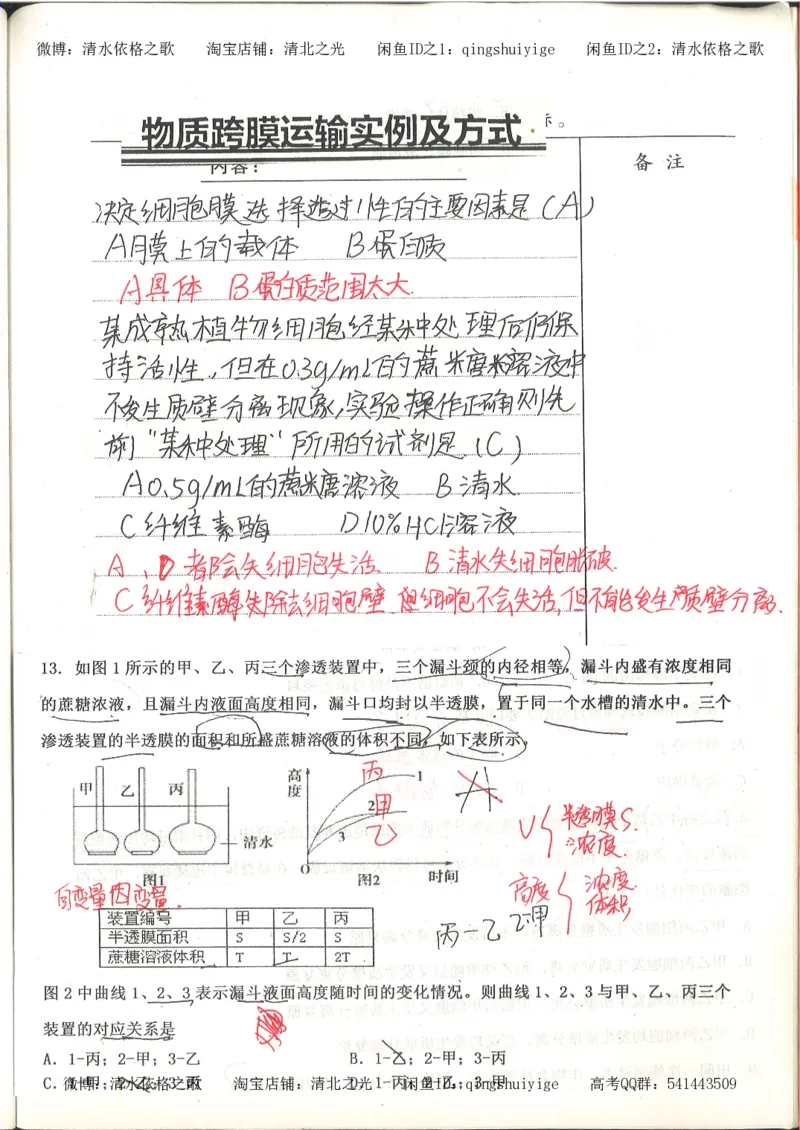 微博：清水依格之歌 淘宝店铺：清北之光 闲鱼ID之1：qingshuiyige 闲鱼ID之2：清水依格之歌
物质跨膜运输实例及方式
示。
内容：
备 注
决定细胞膜选择透过性的主要因素是（A）
A膜上的载体 B蛋白质
A具体 B蛋白质范围太大
某成熟植物细胞经某种处理后仍保
持活性，但在0.3g/mL的蔗糖溶液中
不发生质壁分离现象，实验操作正确则先
前"某种处理"所用的试剂是（C）
A0.5g/mL的蔗糖溶液 B清水
C纤维素酶 D10%HCl溶液
A、D者除会失细胞失活 B清水失细胞胀破
C纤维素酶失除去细胞壁 但细胞不会失活，但不能发生质壁分离.
13．如图1所示的甲、乙、丙三个渗透装置中，三个漏斗颈的内径相等，漏斗内盛有浓度相同
的蔗糖浓液，且漏斗内液面高度相同，漏斗口均封以半透膜，置于同一个水槽的清水中。三个
渗透装置的半透膜的面积和所盛蔗糖溶液的体积不同，如下表所示。
甲 乙 丙
清水
图1
高度
丙
甲
乙
1
2
3
O
时间
图2
A
V 半透膜S.
浓度.
高度 浓度.
体积
自变量 因变量
丙=乙 乙=甲
装置编号 甲 乙 丙
半透膜面积 S S/2 S
蔗糖溶液体积 T T 2T
图2中曲线1、2、3表示漏斗液面高度随时间的变化情况。则曲线1、2、3与甲、乙、丙三个
装置的对应关系是
A．1-丙；2-甲；3-乙 B．1-乙；2-甲；3-丙
C．1-甲；2-乙；3-丙 D．1-丙；2-乙；3-甲
微博：清水依格之歌 淘宝店铺：清北之光 闲鱼ID:qingshuiyige 高考QQ群：541443509